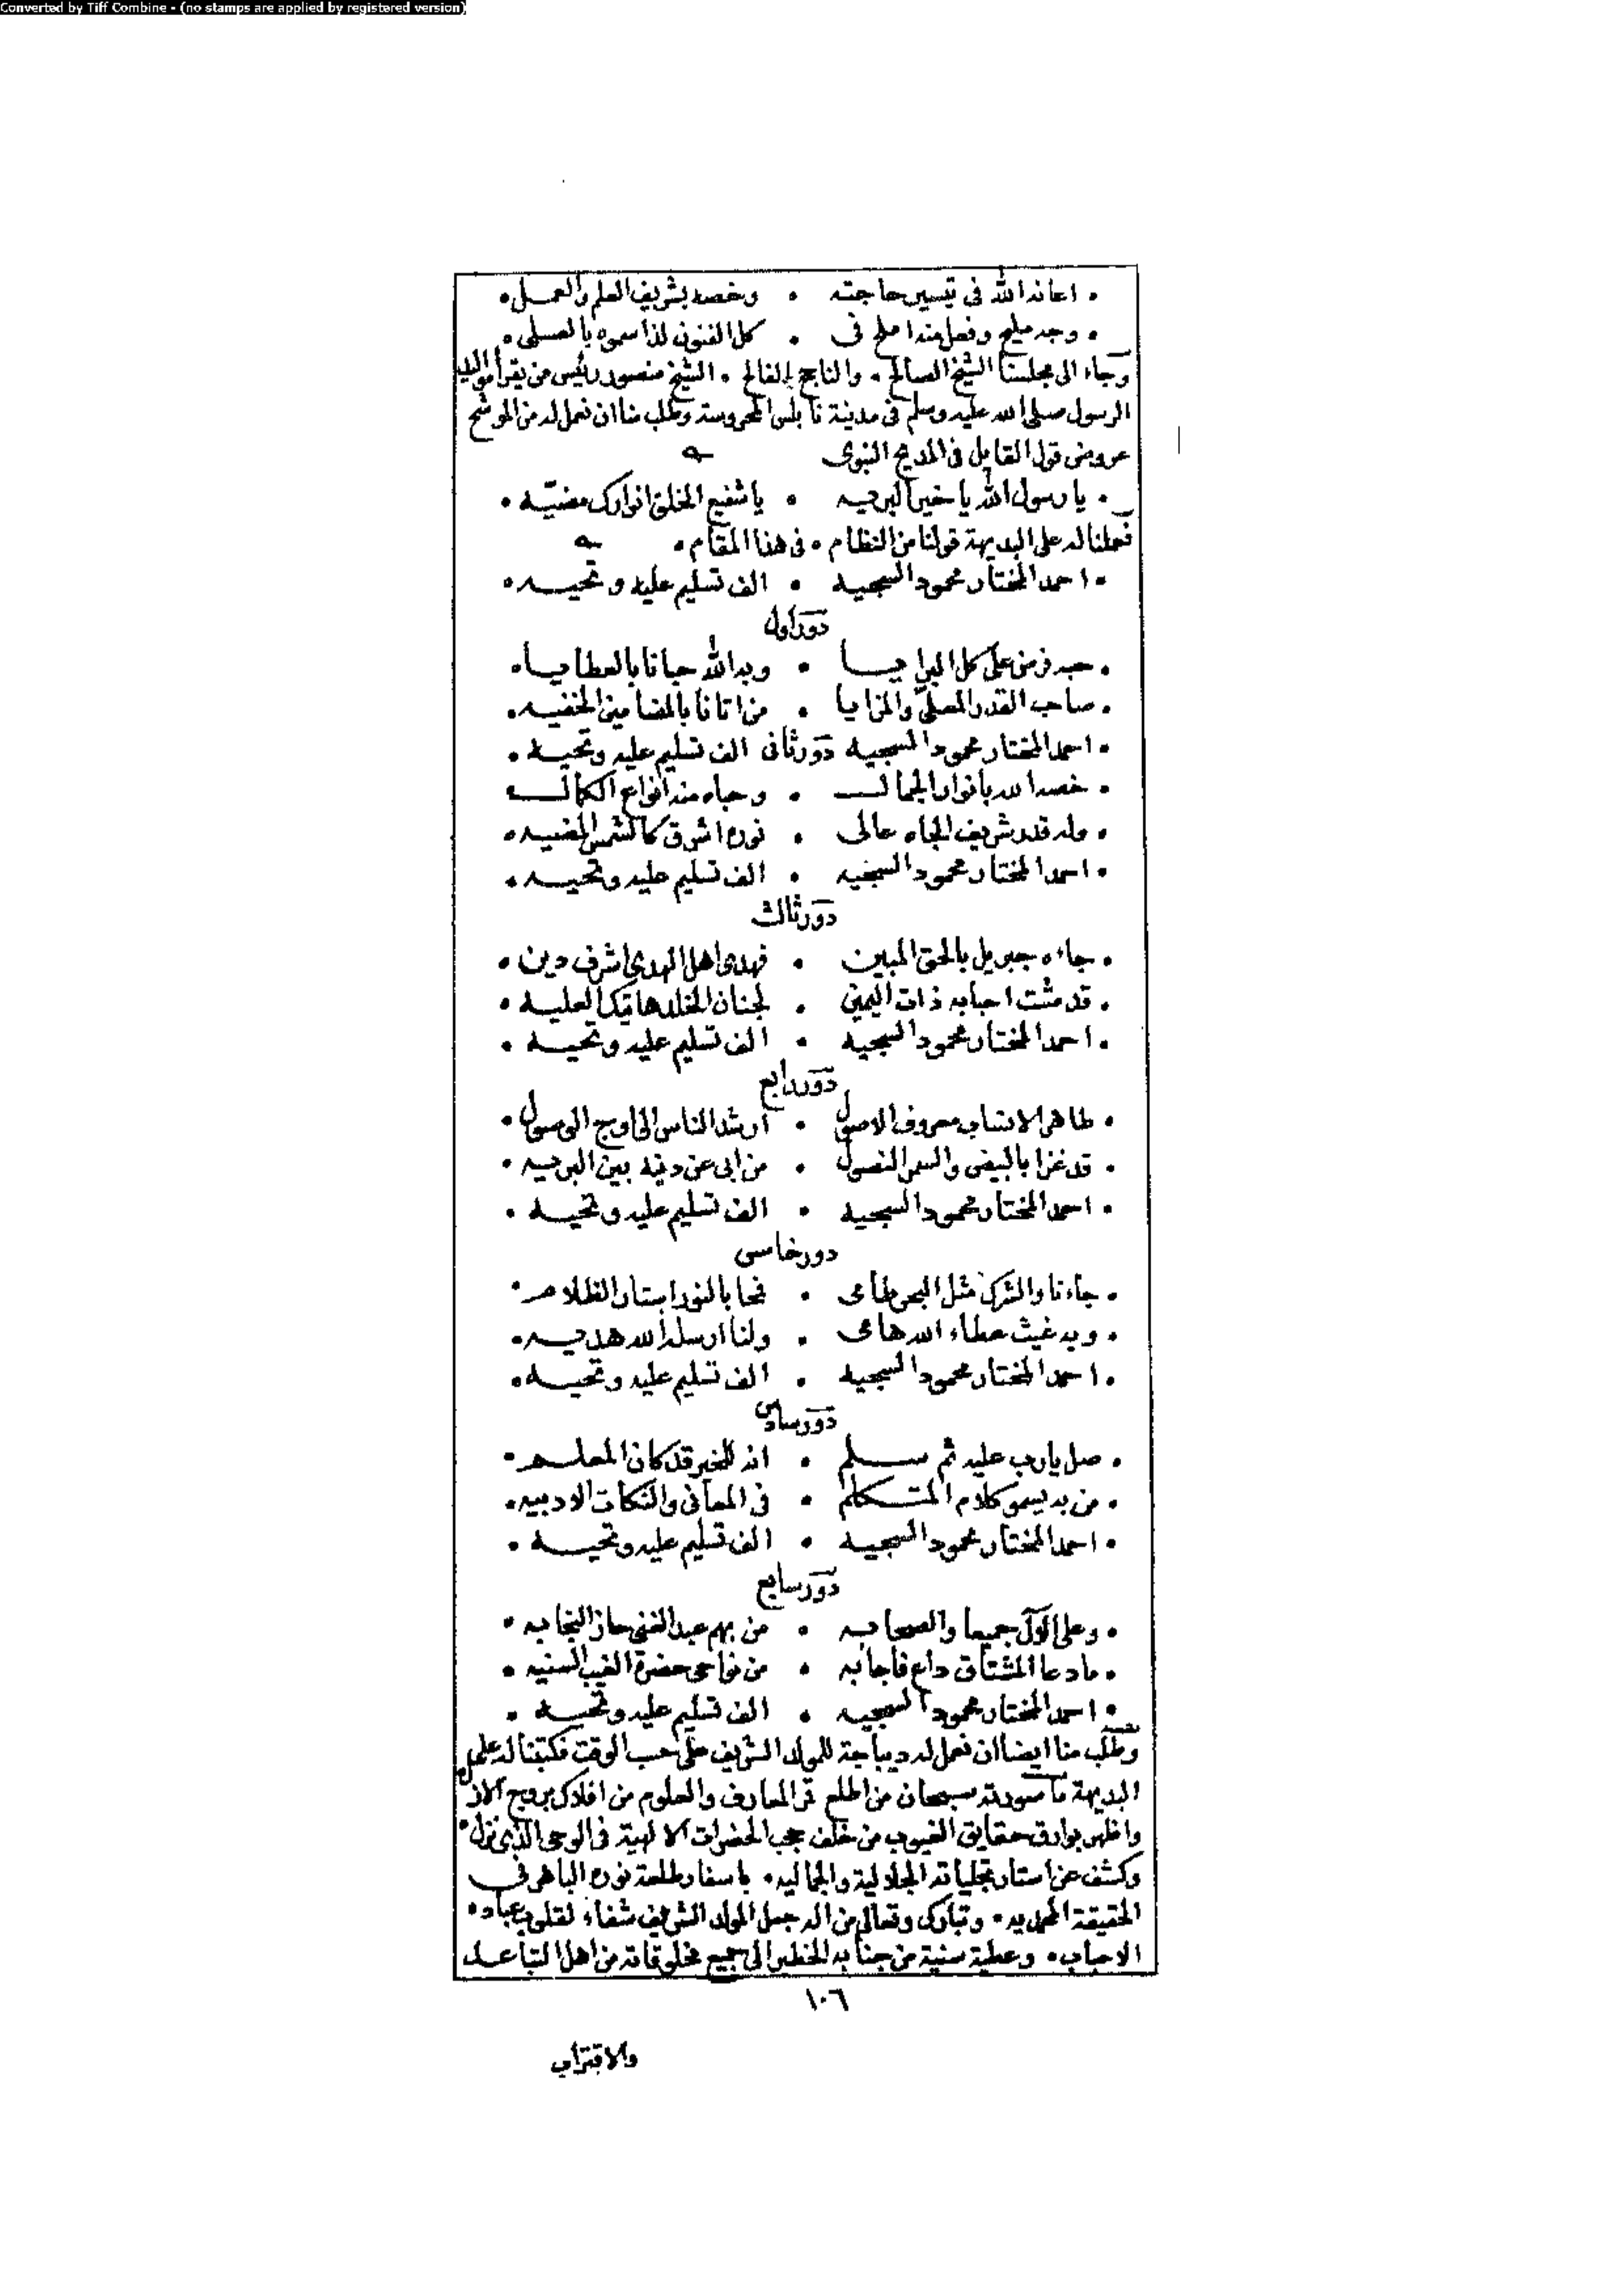 Converted by Tiff Combine - (no stamps are applied by registered version)
• اعانه الله في تيسير حاجته • وخصه بشريف العلم والعمل •
• وجه مليح وفعل منه املح في • كل الفنون لذا سموه بالعسلي •
وجاء الى مجلسنا الشيخ الصالح • والناجح الفالح • الشيخ منصور رئيس من يقرأ مواليد
الرسول صلى الله عليه وسلم في مدينة نابلس المحروسة وطلب منا ان نعمل له من الموشح
عروض قول القايل في المديح النبوي
• يا رسول الله يا خير البريه • يا شفيع الخلق انوارك مضيّه •
فعملنا له على البديهة قولنا من النظام • في هذا المقام •
• احمد المختار محمود السجيه • الف تسليم عليه وتحيه •
دور أول
• حبه فرض على كل البرايا • وبه الله حبانا بالعطايا •
• صاحب القدر المعلّى والمزايا • من اتانا بالمضامين الخفيه •
• احمد المختار محمود السجيه دور ثاني الف تسليم عليه وتحيه •
• خصه الله بانوار الجمال • وحباه منه انواع الكمال
• وله قدر شريف الجاه عالي • نوره اشرق كالشمس المضيه •
• احمد المختار محمود السجيه • الف تسليم عليه وتحيه •
دور ثالث
• جاءه جبريل بالحق المبين • فهدى اهل الهدى اشرف دين •
• قد مشت احبابه ذات اليمين • لجنان الخلد هاتيك العليه •
• احمد المختار محمود السجيه • الف تسليم عليه وتحيه •
دور رابع
• طاهر الانساب معروف الاصول • ارشد الناس الى اوج الوصول •
• قد غزا بالبيض والسمر النصول • من ابى عن دينه بين البريه •
• احمد المختار محمود السجيه • الف تسليم عليه وتحيه •
دور خامس
• جاءنا والشرك مثل البحر طامي • فمحا بالنور استار الظلام •
• وبه غيث عطاء الله هامي • ولنا ارسله الله هديه •
• احمد المختار محمود السجيه • الف تسليم عليه وتحيه •
دور سادس
• صل يا رب عليه ثم سلم • انه للخير قد كان المعلم •
• من به يسمو كلام المتكلم • في المعاني والنكات الادبيه •
• احمد المختار محمود السجيه • الف تسليم عليه وتحيه •
دور سابع
• وعلى الآل جميعا والصحابه • من بهم عبد الغني حاز النجابه •
• ما دعا المشتاق داع فاجابه • من نواحي حضرة الغيب السنيه •
• احمد المختار محمود السجيه • الف تسليم عليه وتحيه •
وطلب منا ايضا ان نعمل له ديباجة للمولد الشريف على حسب الوقت فكتبنا له على
البديهة ما صورته سبحان من اطلع قمر المعارف والعلوم من افلاك بروج الازل
واظهر بوارق حقايق الغيوب من خلف حجب الحضرات الالهية في الوحي الذي نزل •
وكشف عن استار تجلياته الجلالية والجماليه • باسفار طلعة نوره الباهر في
الحقيقة المحمديه • وتبارك وتعالى من اله جعل المولد الشريف شفاء لقلوب عباده
الاحباب • وعطية سنية من جنابه الخطير الى جميع مخلوقاته من اهل التباعد
١٠٦
والاقتراب